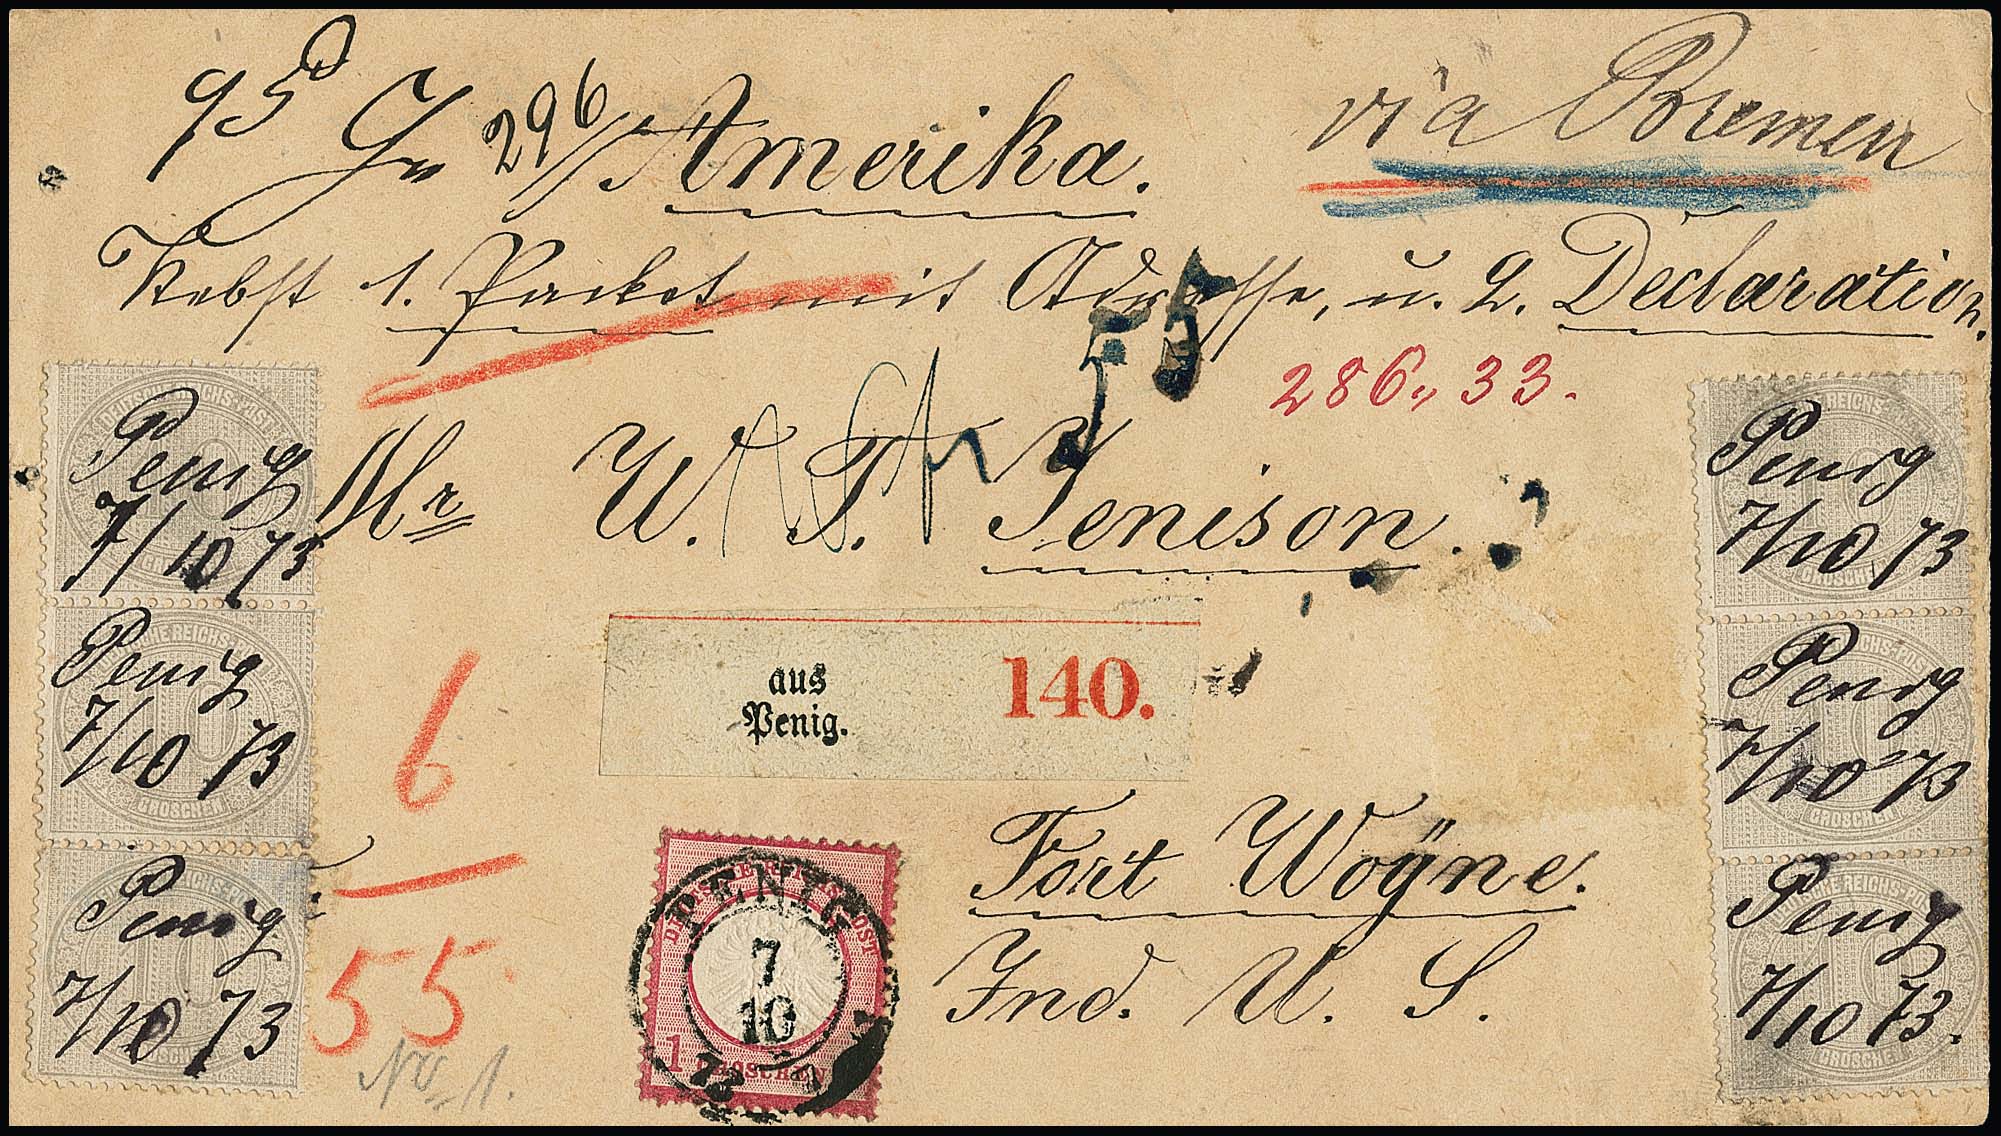 via Bremen
296/ Amerika.
Nebst 1. Packet mit Adresse, u. 2. Declaration.
55
286,, 33.
Mr W. T. Jenison.
aus
Penig.
140.
Fort Wayne.
Ind. U. S.
6
55
No 1.
Penig
7/10 73
Penig
7/10 73
Penig
7/10 73
Penig
7/10 73
Penig
7/10 73
Penig
7/10 73.
DEUTSCHE REICHS-POST
GROSCHEN
DEUTSCHE REICHS-POST
1 GROSCHEN
PENIG
7
10
73